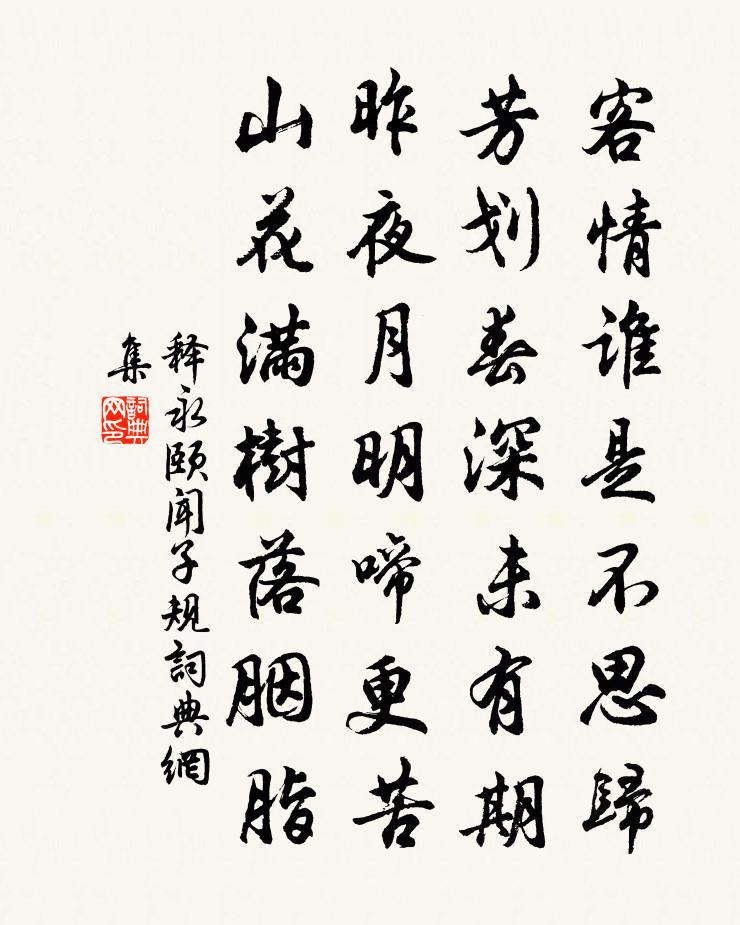 客情谁是不思歸
芳划春深未有期
昨夜月明啼更苦
山花滿樹落胭脂
释永颐闻子規詞典網
集
詞典
网印